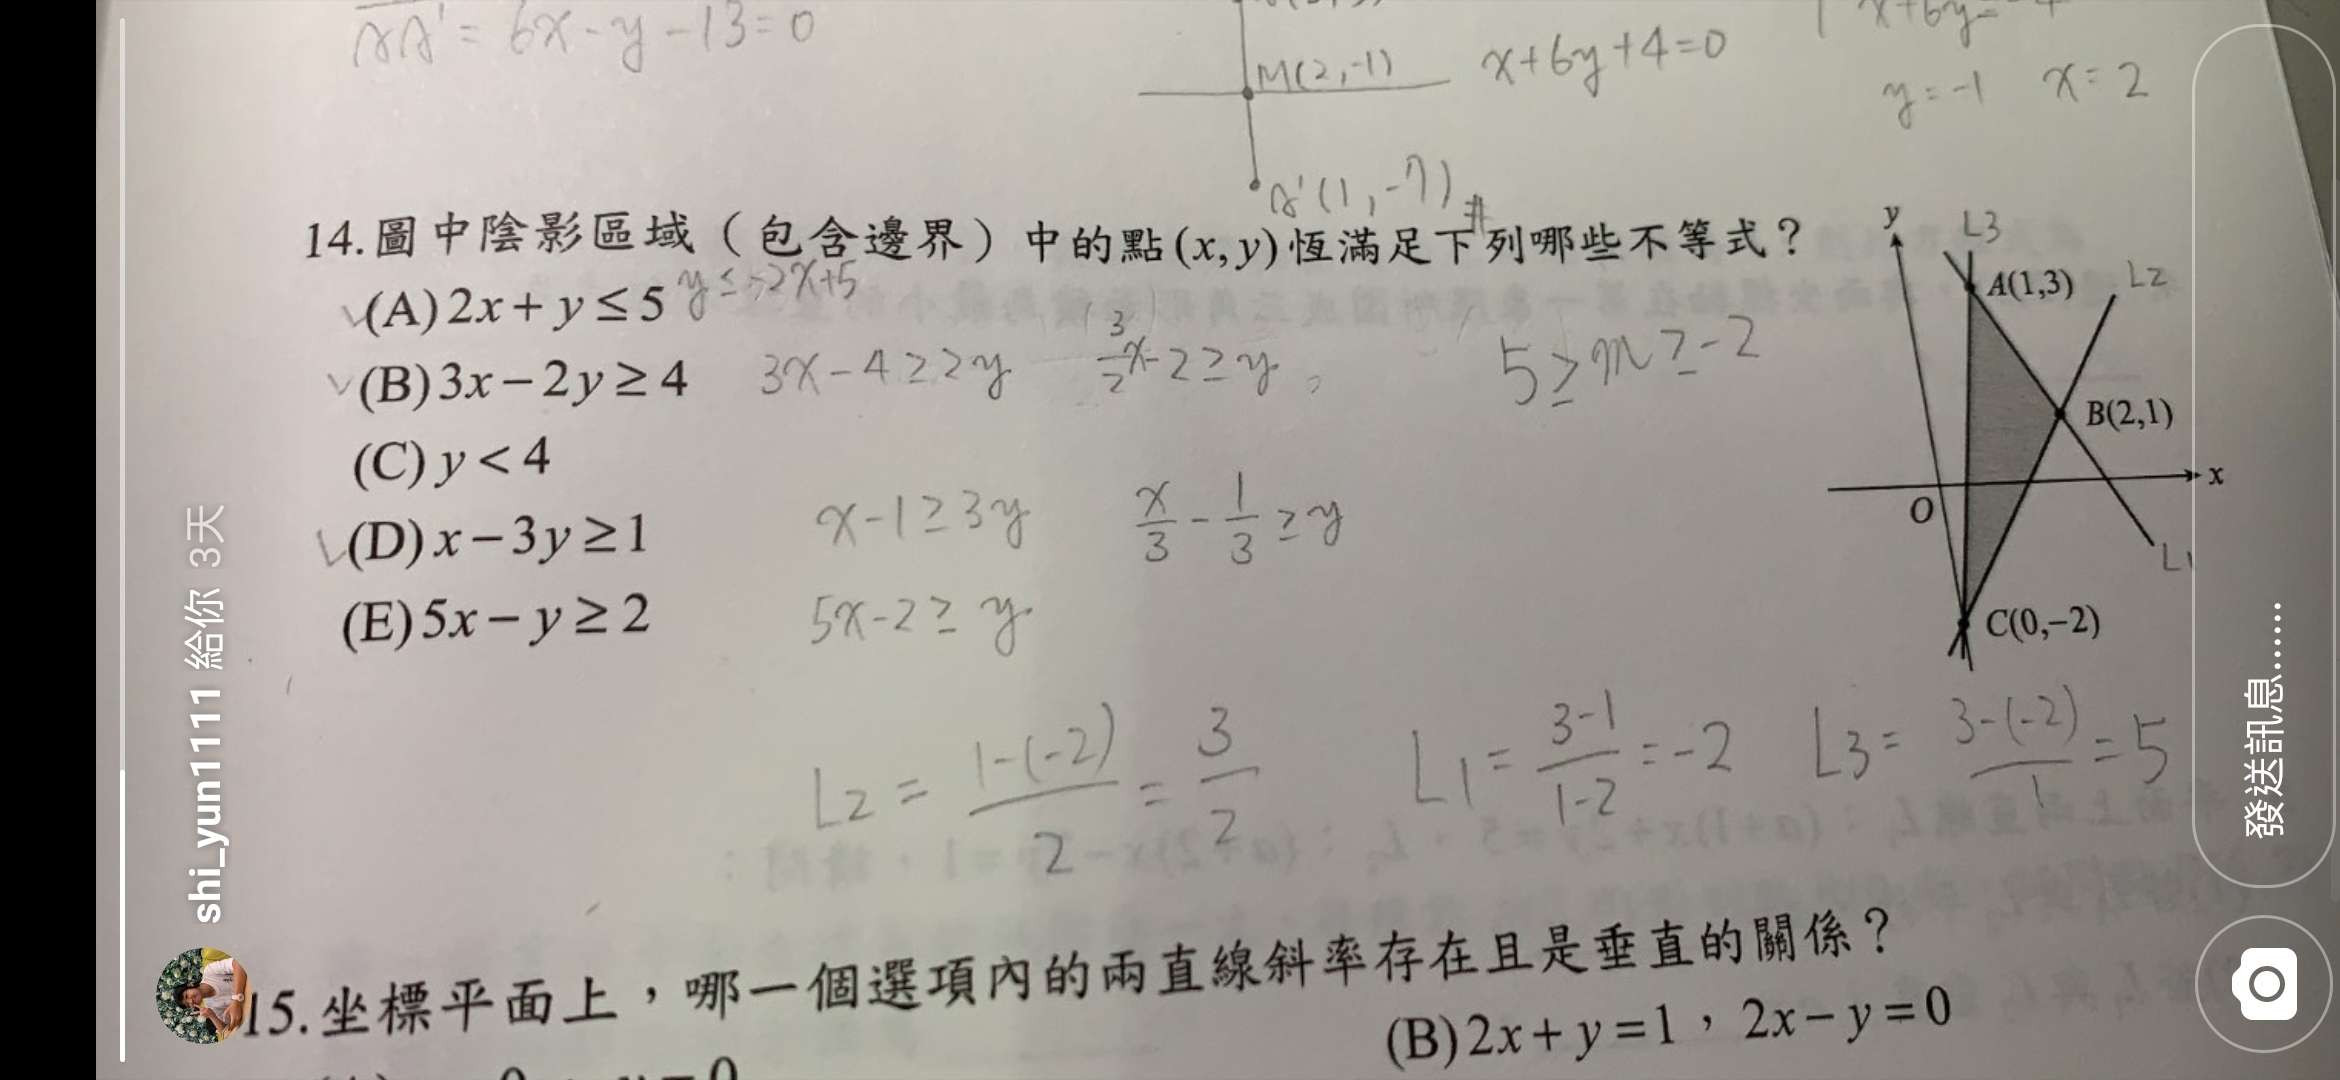 AA' = 6x-y-13=0
M(2,-1)
x+6y+4=0
x+6y=-4
y=-1 x=2
A'(1,-7)#
14.圖中陰影區域（包含邊界）中的點(x,y)恆滿足下列哪些不等式？
(A)2x+y≤5 y≤-2x+5
(B)3x-2y≥4 3x-4≥2y 3/2x-2≥y
5≥m≥-2
(C)y<4
(D)x-3y≥1 x-1≥3y x/3-1/3≥y
(E)5x-y≥2 5x-2≥y
y
L3
A(1,3)
L2
B(2,1)
x
O
L1
C(0,-2)
L2=1-(-2)/2=3/2 L1=3-1/1-2=-2 L3=3-(-2)/1=5
15.坐標平面上，哪一個選項內的兩直線斜率存在且是垂直的關係？
(B)2x+y=1，2x-y=0
shi_yun11111 給你 3天
發送訊息......